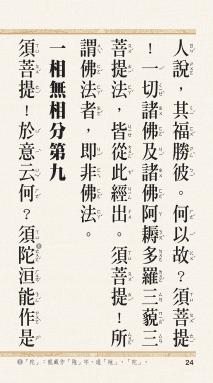 人說，其福勝彼。何以故？須菩提
！一切諸佛及諸佛阿耨多羅三藐三
菩提法，皆從此經出。須菩提！所
謂佛法者，即非佛法。
一相無相分第九
須菩提！於意云何？須陀洹能作是
24